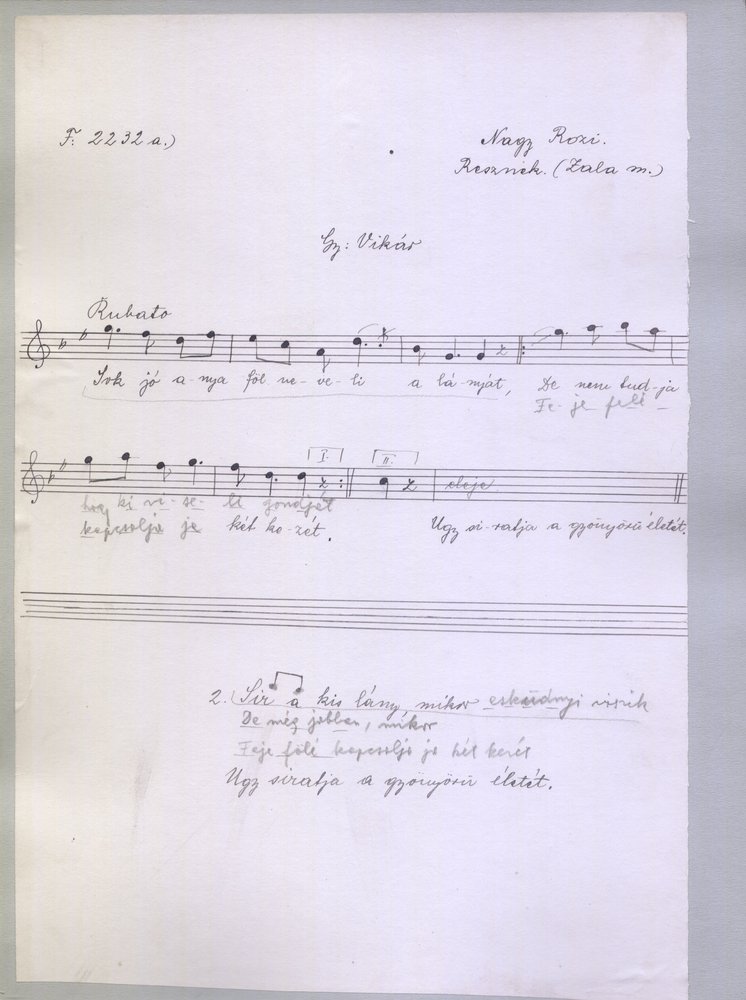 F. 2232 a.)
Nagy Rozi.
Resznek. (Zala m.)
Gy: Vikár
Rubato
Sok jó a-nya föl-ne-ve-li a lá-nyát, De nem tud-ja
Fe-je felé-
hogy ki vi-se-li gondját
kapcsolja je két ke-zét.
I.
II.
eleje
Ugy si-ratja a gyönyörü életét.
2. Sir a kis lány, mikor esküdnyi viszik
De még jobban, mikor
Feje fölé kapcsolja ja két kezét
Ugy siratja a gyönyörü életét.